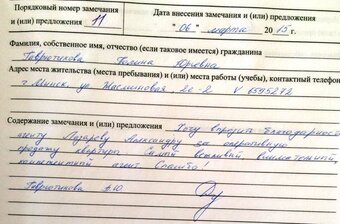 Порядковый номер замечания
и (или) предложения 11
Дата внесения замечания и (или) предложения
"06" марта 2015 г.
Фамилия, собственное имя, отчество (если таковое имеется) гражданина
Гаврютикова Полина Юрьевна
Адрес места жительства (места пребывания) и (или) места работы (учебы), контактный телефон
г. Минск, ул Жасминовая 2е-2 V 6595272
Содержание замечания и (или) предложения Хочу выразить благодарность
агенту Лазареву Александру за оперативную
продажу квартиры. Самый вежливый, внимательный,
компетентный агент. Спасибо!
Гаврютикова П.Ю.